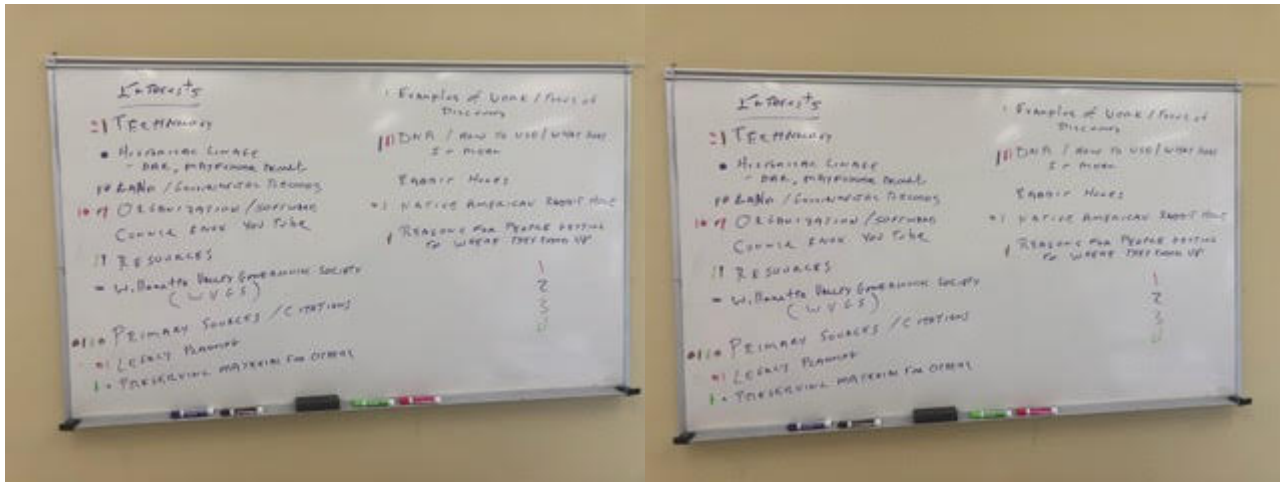 Interests
TECHNOLOGY
• HISTORICAL LINAGE
- DAR, MAYFLOWER
LAND / GOVERNMENTAL RECORDS
ORGANIZATION / SOFTWARE
CONNIE KNOX YOU TUBE
RESOURCES
- Willamette VALLEY GENEALOGICAL SOCIETY
(WVGS)
PRIMARY SOURCES / CITATIONS
LEGACY PLANNING
• PRESERVING MATERIAL FOR OTHERS
Examples of WORK / Focus of
Discovery
DNA / HOW TO USE / WHAT DOES
IT MEAN
RABBIT HOLES
NATIVE AMERICAN RABBIT HOLE
REASONS FOR PEOPLE GETTING
TO WHERE THEY END UP
1
2
3
Interests
TECHNOLOGY
• HISTORICAL LINAGE
- DAR, MAYFLOWER
LAND / GOVERNMENTAL RECORDS
ORGANIZATION / SOFTWARE
CONNIE KNOX YOU TUBE
RESOURCES
- Willamette VALLEY GENEALOGICAL SOCIETY
(WVGS)
PRIMARY SOURCES / CITATIONS
LEGACY PLANNING
• PRESERVING MATERIAL FOR OTHERS
Examples of WORK / Focus of
Discovery
DNA / HOW TO USE / WHAT DOES
IT MEAN
RABBIT HOLES
NATIVE AMERICAN RABBIT HOLE
REASONS FOR PEOPLE GETTING
TO WHERE THEY END UP
1
2
3